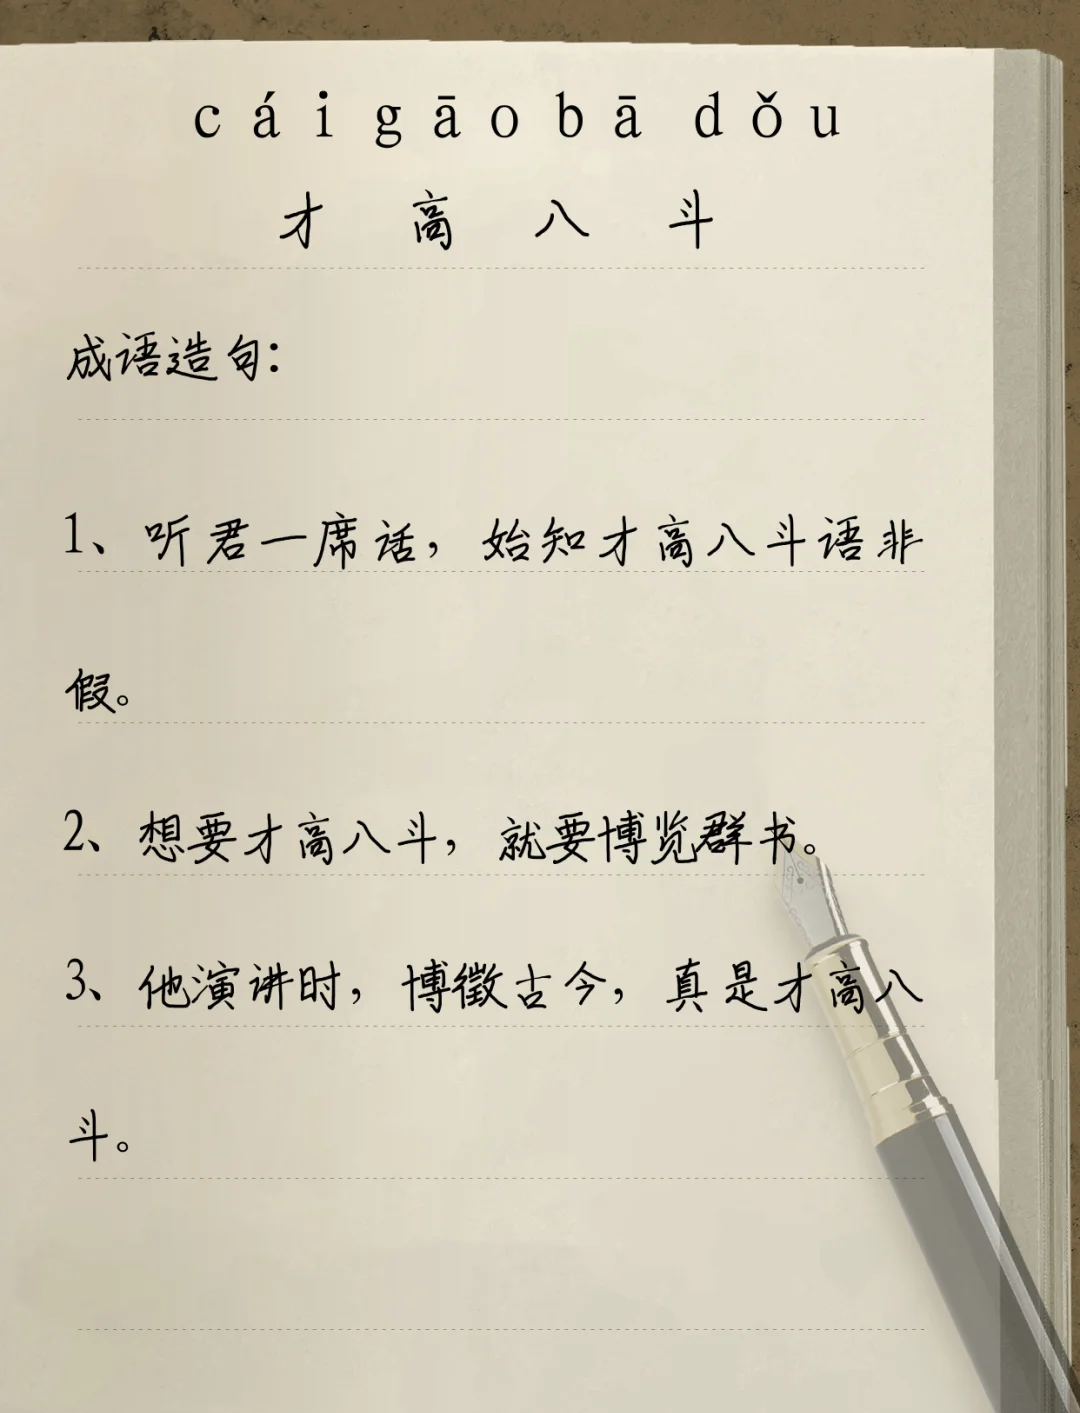 cái gāo bā dǒu
才高八斗
成语造句:
1、听君一席话，始知才高八斗语非
假。
2、想要才高八斗，就要博览群书。
3、他演讲时，博徵古今，真是才高八
斗。